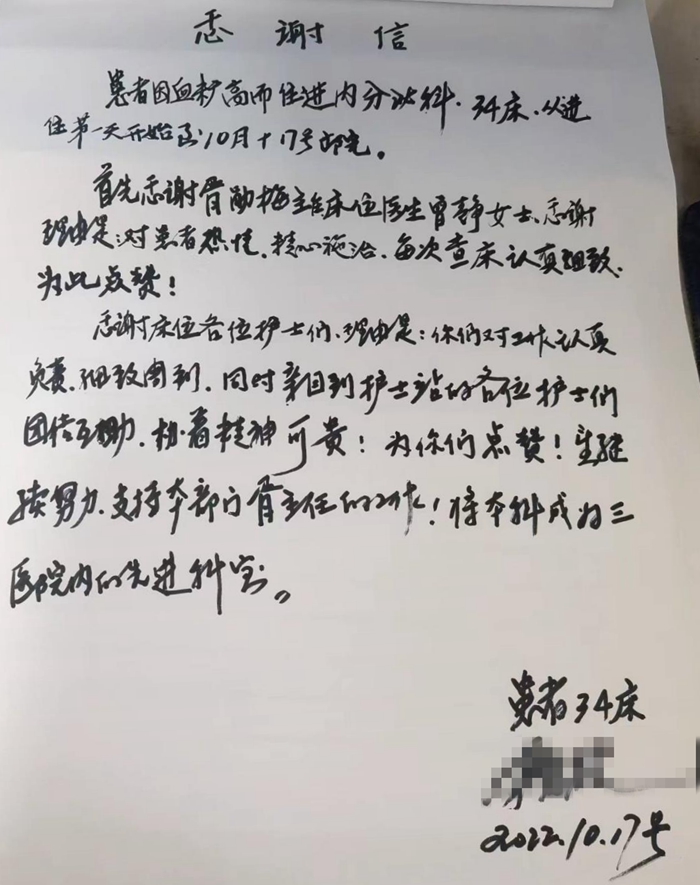 感谢信
患者因血糖高而住进内分泌科.34床.从进
住第一天开始到10月十17号出院。
首先感谢胥勋梅主任床位医生曾静女士、感谢
理由是:对患者热情.精心施治.每次查床认真细致.
为此点赞!
感谢床位各位护士们、理由是:你们对工作认真
负责.细致周到.同时亲目到护士站的各位护士们
团结互助.协着精神可贵!为你们点赞!望继
续努力.支持本部门胥主任的工作!将本科成为三
医院内的先进科室。
患者34床
2022.10.17号